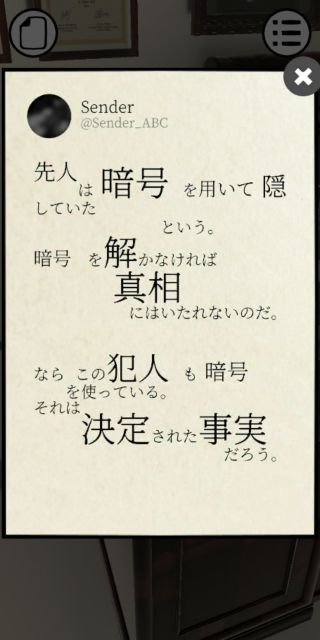 Sender
@Sender_ABC
先人は暗号を用いて隠
していた
という。
暗号を解かなければ
真相
にはいたれないのだ。
ならこの犯人も暗号
を使っている。
それは
決定された事実
だろう。